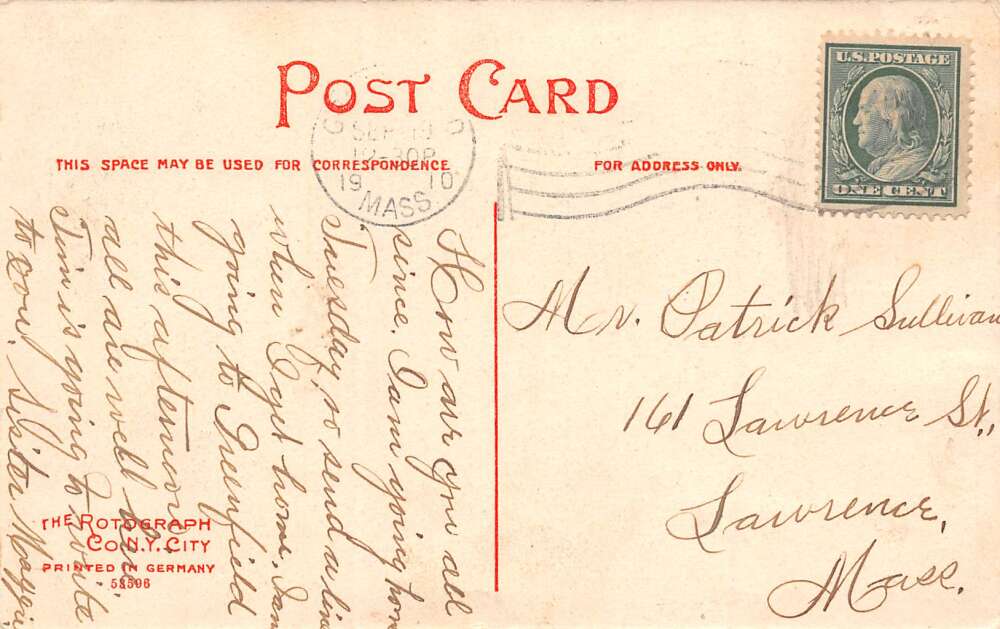 POST CARD
THIS SPACE MAY BE USED FOR CORRESPONDENCE
FOR ADDRESS ONLY.
U.S. POSTAGE
ONE CENT
SEP 19
12-30P
19 10
MASS
How are you all
since. I am going hom
Tuesday, so send a line
when I get home. I am
going to Greenfield
this afternoon
all are well
Jim is going to write
to you. Sister Maggie
Mr. Patrick Sullivan
161 Lawrence St.,
Lawrence,
Mass.
THE ROTOGRAPH
CO. N.Y. CITY
PRINTED IN GERMANY